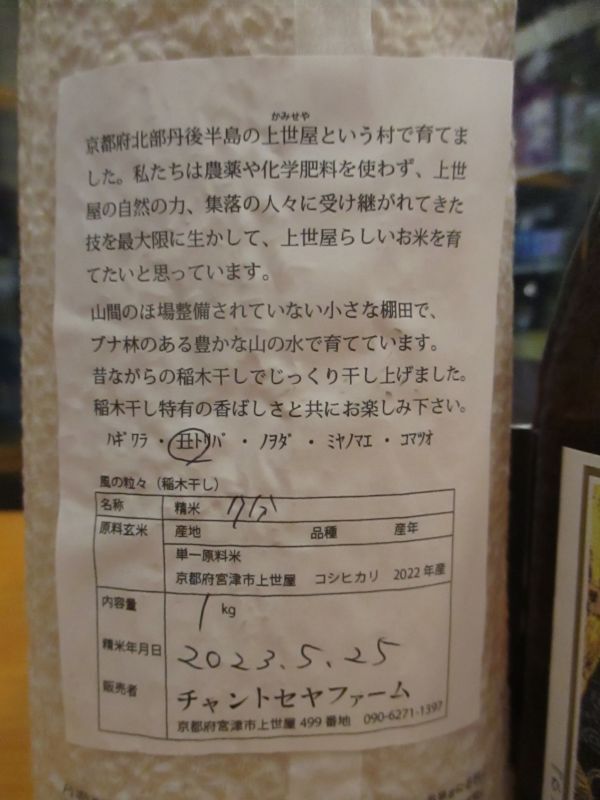 かみせや
京都府北部丹後半島の上世屋という村で育てま
した。私たちは農薬や化学肥料を使わず、上世
屋の自然の力、集落の人々に受け継がれてきた
技を最大限に生かして、上世屋らしいお米を育
てたいと思っています。
山間のほ場整備されていない小さな棚田で、
ブナ林のある豊かな山の水で育てています。
昔ながらの稲木干しでじっくり干し上げました。
稲木干し特有の香ばしさと共にお楽しみ下さい。
ﾊｷﾞﾜﾗ・丑ﾄﾘﾊﾞ・ﾉｦﾀﾞ・ﾐﾔﾉﾏｴ・ｺﾏﾂｵ
風の粒々（稲木干し）
名称 精米 7分
原料玄米 産地 品種 産年
単一原料米
京都府宮津市上世屋 コシヒカリ 2022年産
内容量 1 kg
精米年月日 2023.5.25
販売者 チャントセヤファーム
京都府宮津市上世屋499番地 090-6271-1397